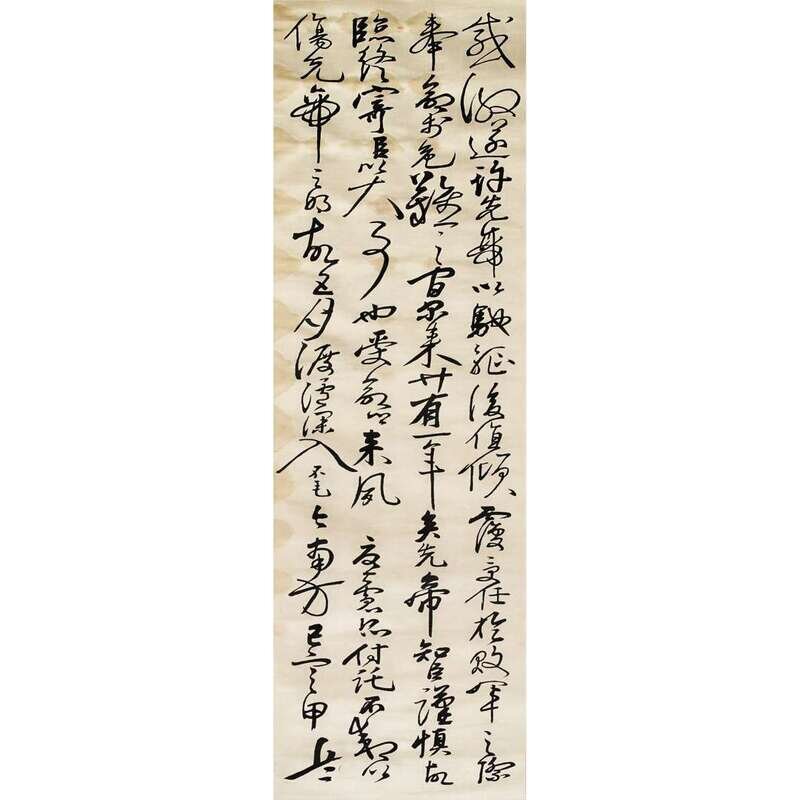 感激遂許先帝以馳驅後值傾覆受任於敗軍之際
奉命於危難之間爾來廿有一年矣先帝知臣謹慎故
臨終寄臣以大事也受命以來夙夜慮恐付託不效以
傷先帝之明故五月渡瀘深入不毛今南方已定甲兵